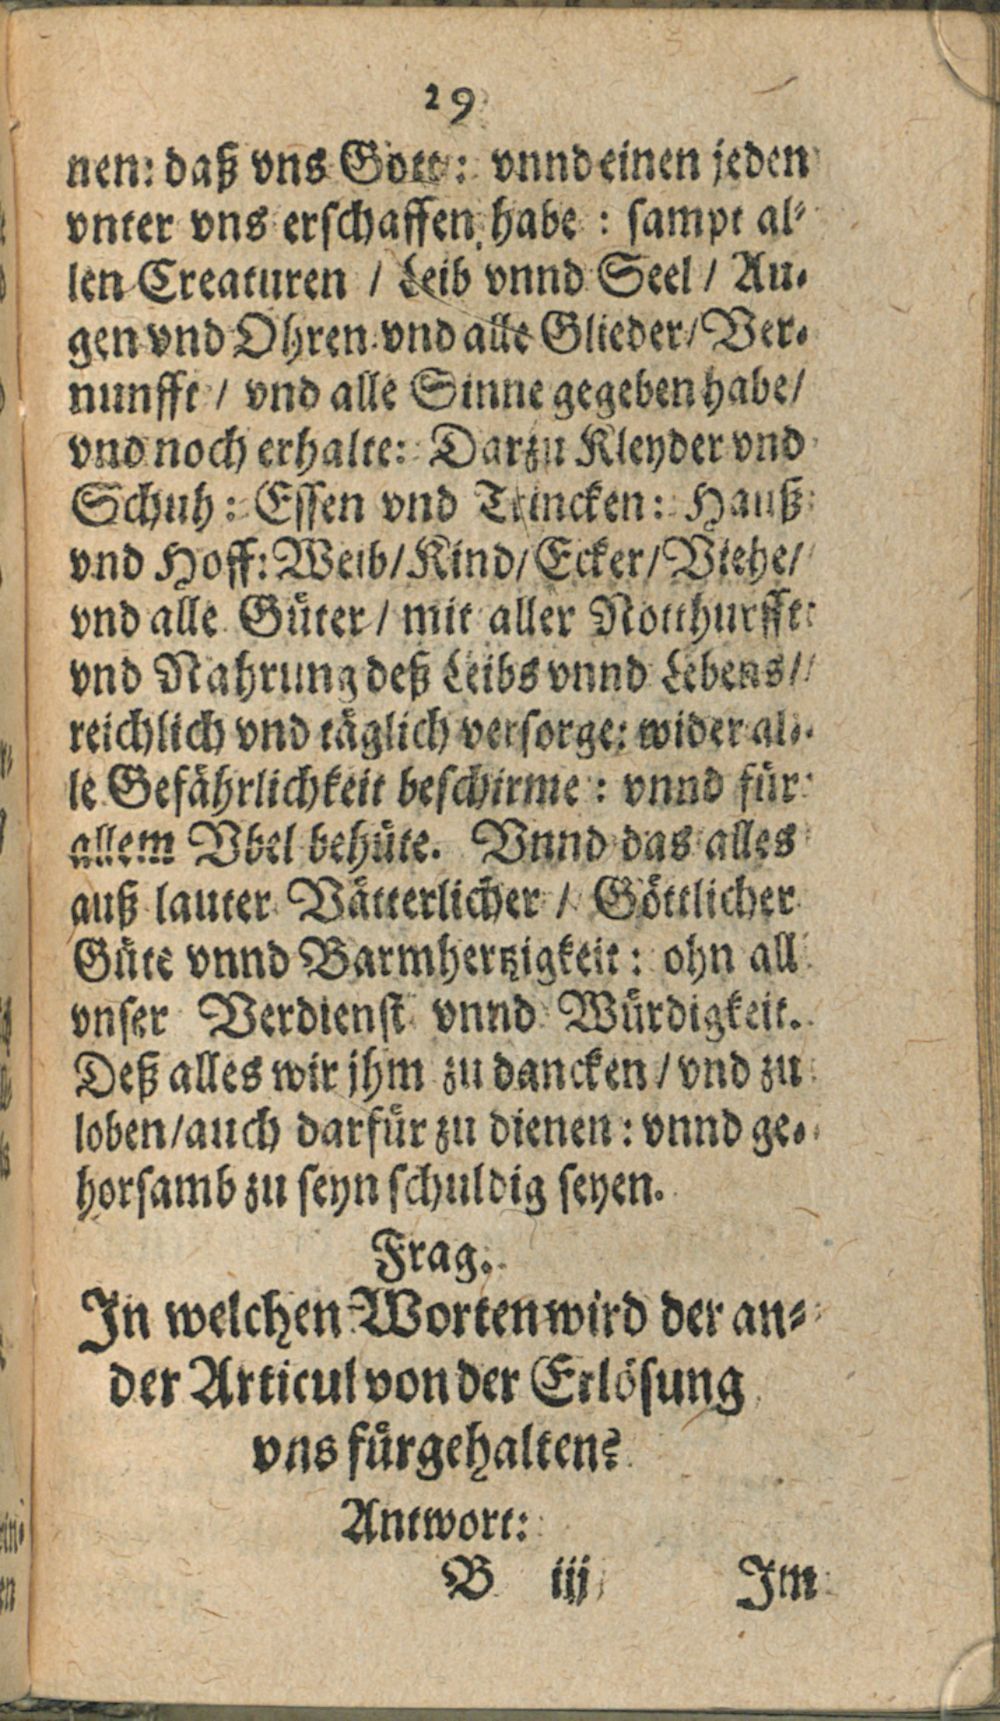 29
nen: daß vns Gott: vnnd einen jeden
vnter vns erschaffen habe : sampt al-
len Creaturen / Leib vnnd Seel / Au-
gen vnd Ohren vnd alle Glieder / Ver-
nunfft / vnd alle Sinne gegeben habe /
vnd noch erhalte: Darzu Kleyder vnd
Schuh: Essen vnd Trincken: Hauß
vnd Hoff: Weib / Kind / Ecker / Viehe /
vnd alle Güter / mit aller Notthurfft
vnd Nahrung deß Leibs vnnd Lebens /
reichlich vnd täglich versorge: wider al-
le Gefährlichkeit beschirme : vnnd für
allem Vbel behüte. Vnnd das alles
auß lauter Vätterlicher / Göttlicher
Güte vnnd Barmhertzigkeit: ohn all
vnser Verdienst vnnd Würdigkeit.
Deß alles wir jhm zu dancken / vnd zu
loben / auch darfür zu dienen: vnnd ge-
horsamb zu seyn schuldig seyen.
Frag.
In welchen Worten wird der an-
der Articul von der Erlösung
vns fürgehalten?
Antwort:
B iij Im